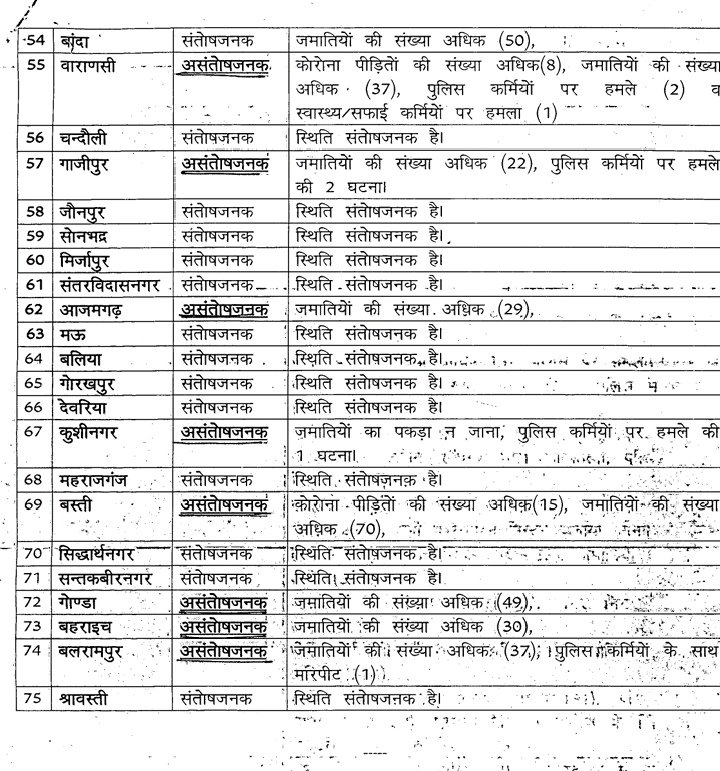 54 बांदा संतोषजनक जमातियों की संख्या अधिक (50),
55 वाराणसी असंतोषजनक कोरोना पीड़ितों की संख्या अधिक(8), जमातियों की संख्या
अधिक (37), पुलिस कर्मियों पर हमले (2) व
स्वास्थ्य/सफाई कर्मियों पर हमला (1)
56 चन्दौली संतोषजनक स्थिति संतोषजनक है।
57 गाजीपुर असंतोषजनक जमातियों की संख्या अधिक (22), पुलिस कर्मियों पर हमले
की 2 घटना।
58 जौनपुर संतोषजनक स्थिति संतोषजनक है।
59 सोनभद्र संतोषजनक स्थिति संतोषजनक है।
60 मिर्जापुर संतोषजनक स्थिति संतोषजनक है।
61 संतरविदासनगर संतोषजनक स्थिति संतोषजनक है।
62 आजमगढ़ असंतोषजनक जमातियों की संख्या अधिक (29),
63 मऊ संतोषजनक स्थिति संतोषजनक है।
64 बलिया संतोषजनक स्थिति संतोषजनक है।
65 गोरखपुर संतोषजनक स्थिति संतोषजनक है।
66 देवरिया संतोषजनक स्थिति संतोषजनक है।
67 कुशीनगर असंतोषजनक जमातियों का पकड़ा न जाना, पुलिस कर्मियों पर हमले की
1 घटना।
68 महराजगंज संतोषजनक स्थिति संतोषजनक है।
69 बस्ती असंतोषजनक कोरोना पीड़ितों की संख्या अधिक(15), जमातियों की संख्या
अधिक (70),
70 सिद्धार्थनगर संतोषजनक स्थिति संतोषजनक है।
71 सन्तकबीरनगर संतोषजनक स्थिति संतोषजनक है।
72 गोण्डा असंतोषजनक जमातियों की संख्या अधिक (49),
73 बहराइच असंतोषजनक जमातियों की संख्या अधिक (30),
74 बलरामपुर असंतोषजनक जमातियों की संख्या अधिक (37), पुलिस कर्मियों के साथ
मारपीट (1)
75 श्रावस्ती संतोषजनक स्थिति संतोषजनक है।